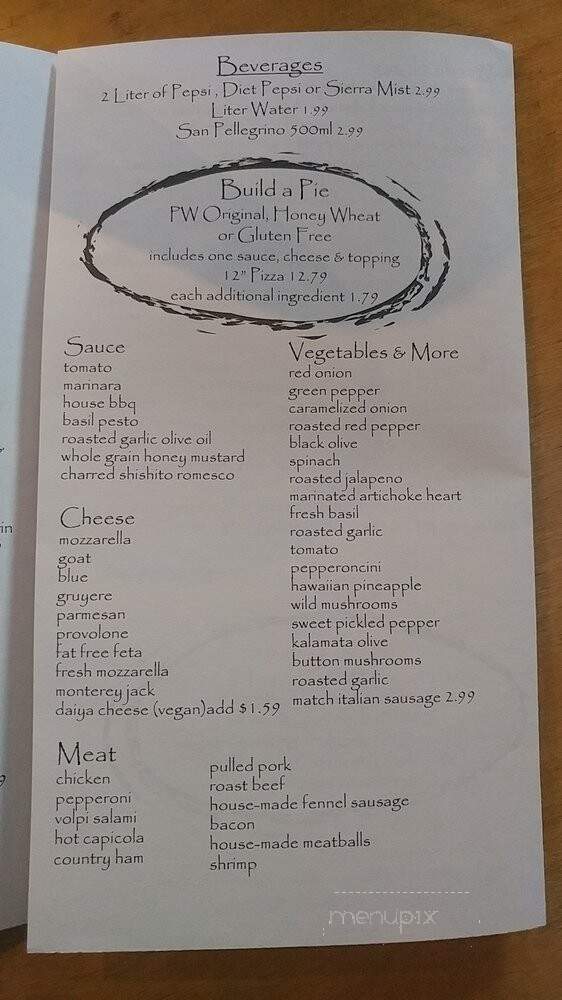 Beverages
2 Liter of Pepsi , Diet Pepsi or Sierra Mist 2.99
Liter Water 1.99
San Pellegrino 500ml 2.99
Build a Pie
PW Original, Honey Wheat
or Gluten Free
includes one sauce, cheese & topping
12" Pizza 12.79
each additional ingredient 1.79
Sauce
tomato
marinara
house bbq
basil pesto
roasted garlic olive oil
whole grain honey mustard
charred shishito romesco
Cheese
mozzarella
goat
blue
gruyere
parmesan
provolone
fat free feta
fresh mozzarella
monterey jack
daiya cheese (vegan)add $1.59
Vegetables & More
red onion
green pepper
caramelized onion
roasted red pepper
black olive
spinach
roasted jalapeno
marinated artichoke heart
fresh basil
roasted garlic
tomato
pepperoncini
hawaiian pineapple
wild mushrooms
sweet pickled pepper
kalamata olive
button mushrooms
roasted garlic
match italian sausage 2.99
Meat
chicken
pepperoni
volpi salami
hot capicola
country ham
pulled pork
roast beef
house-made fennel sausage
bacon
house-made meatballs
shrimp
menupix